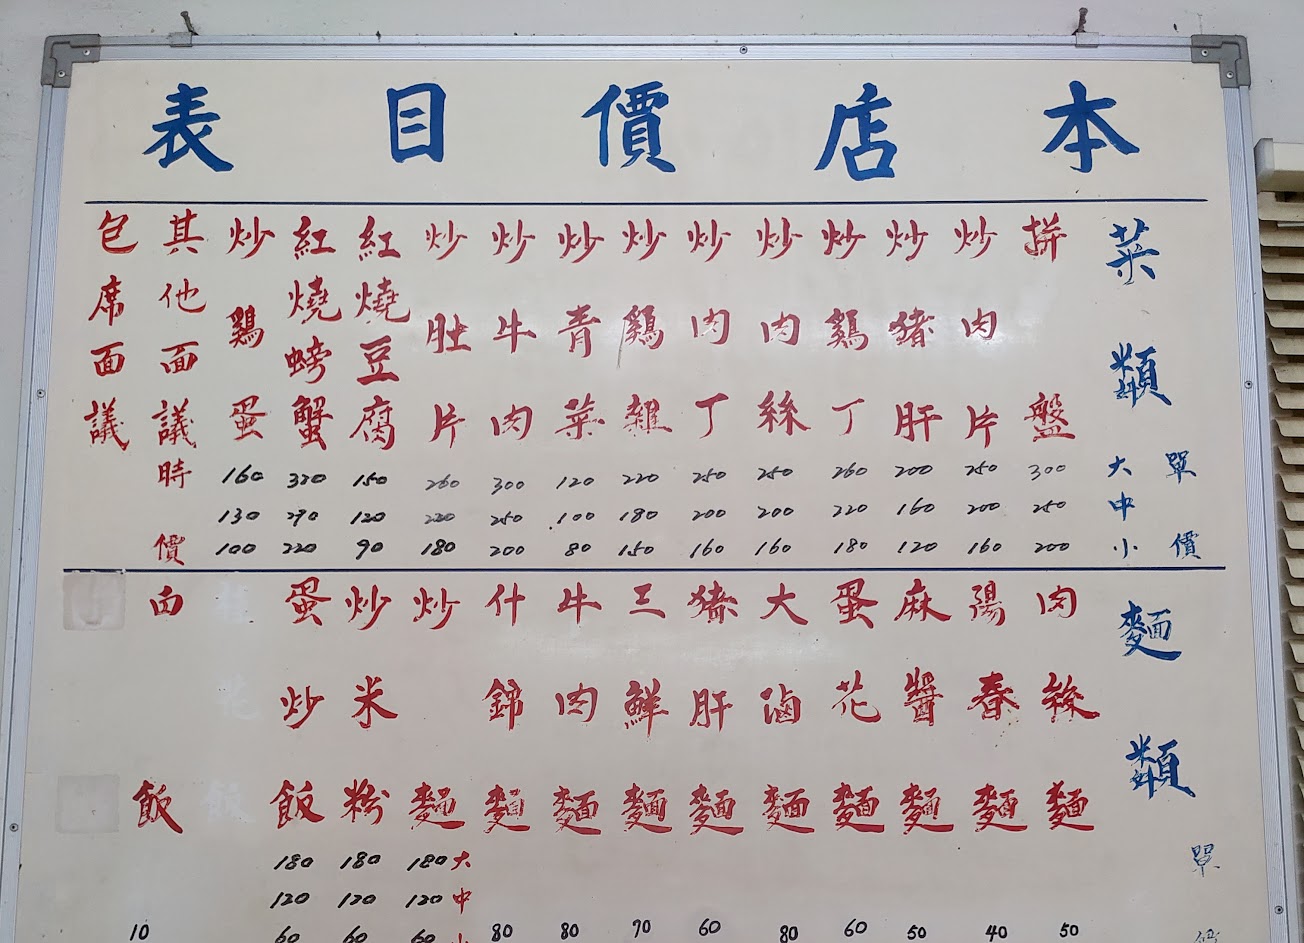 本店價目表
菜類 單價 大 中 小
拼盤 300 250 200
炒肉片 250 200 160
炒豬肝 200 160 120
炒鷄丁 260 220 180
炒肉絲 250 200 160
炒肉丁 250 200 160
炒鷄雜 220 180 150
炒青菜 120 100 80
炒牛肉 300 250 200
炒肚片 260 220 180
紅燒豆腐 150 120 90
紅燒螃蟹 320 290 220
炒鷄蛋 160 130 100
其他面議時價
包席面議
麵類 單
肉絲麵 50
陽春麵 40
麻醬麵 50
蛋花麵 60
大滷麵 80
豬肝麵 60
三鮮麵 90
牛肉麵 80
什錦麵 80
大 中 小
炒麵 180 120 60
炒米粉 180 120 60
蛋炒飯 180 120 60
白飯 10